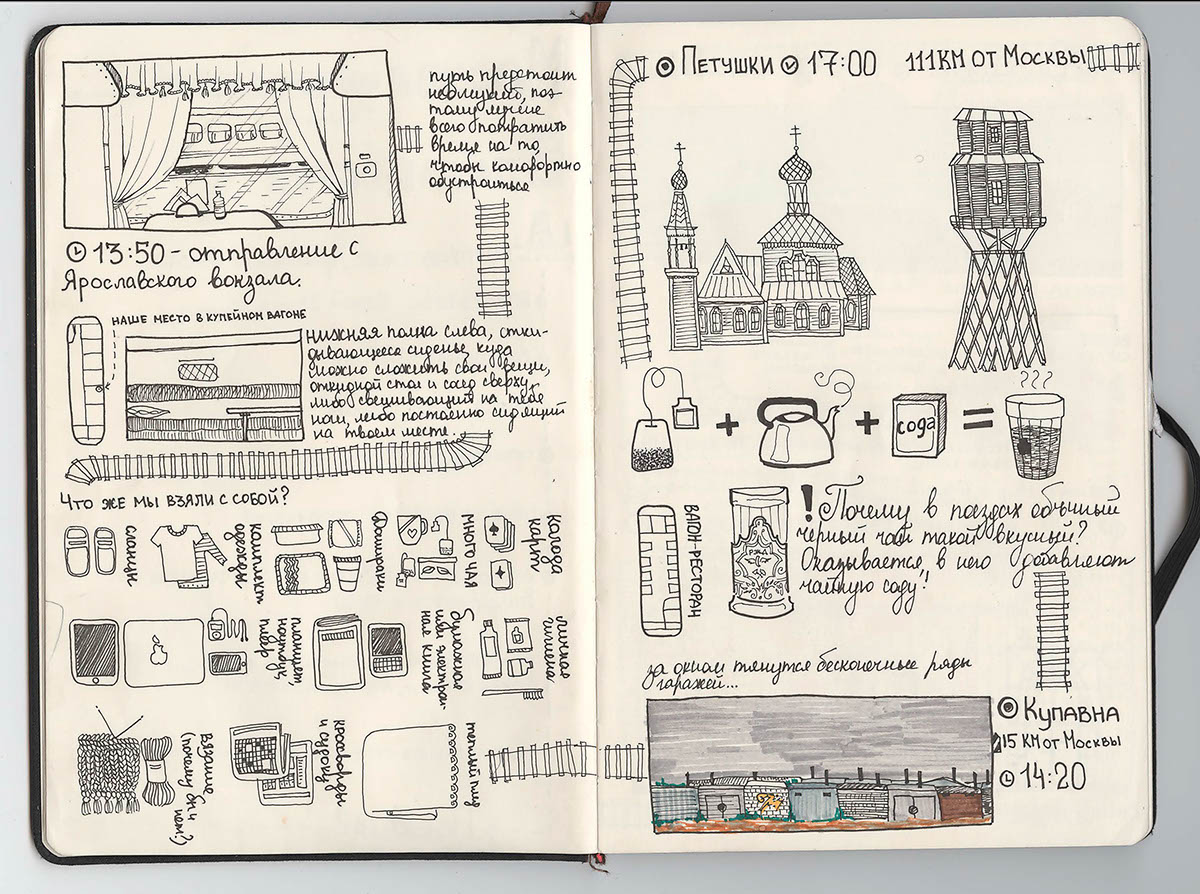 путь предстоит
неблизкий, поэ-
тому лучше
всего потратить
время на то
чтобы комфортно
обустроиться
13:50 - отправление с
Ярославского вокзала.
НАШЕ МЕСТО В КУПЕЙНОМ ВАГОНЕ
нижняя полка слева, отки-
дывающееся сиденье, куда
можно сложить свои вещи,
откидной стол и сосед сверху,
либо свешивающий на тебя
ноги, либо постоянно сидящий
на твоем месте.
Что же мы взяли с собой?
сланцы
комплект
одежды
Дошираки
много чая
Колода
карт
планшет,
ноутбук,
плеер
бумажная
или электрон-
ная книга
личная
гигиена
Вязание
(почему бы и
нет?)
кроссворды
и судоку
теплый плед
Петушки 17:00 111КМ от Москвы
+ + сода = ???
ВАГОН-РЕСТОРАН
РЖД
! Почему в поездах обычный
черный чай такой вкусный?
Оказывается, в него добавляют
чайную соду!
за окном тянутся бесконечные ряды
гаражей...
Купавна
15 КМ от Москвы
14:20